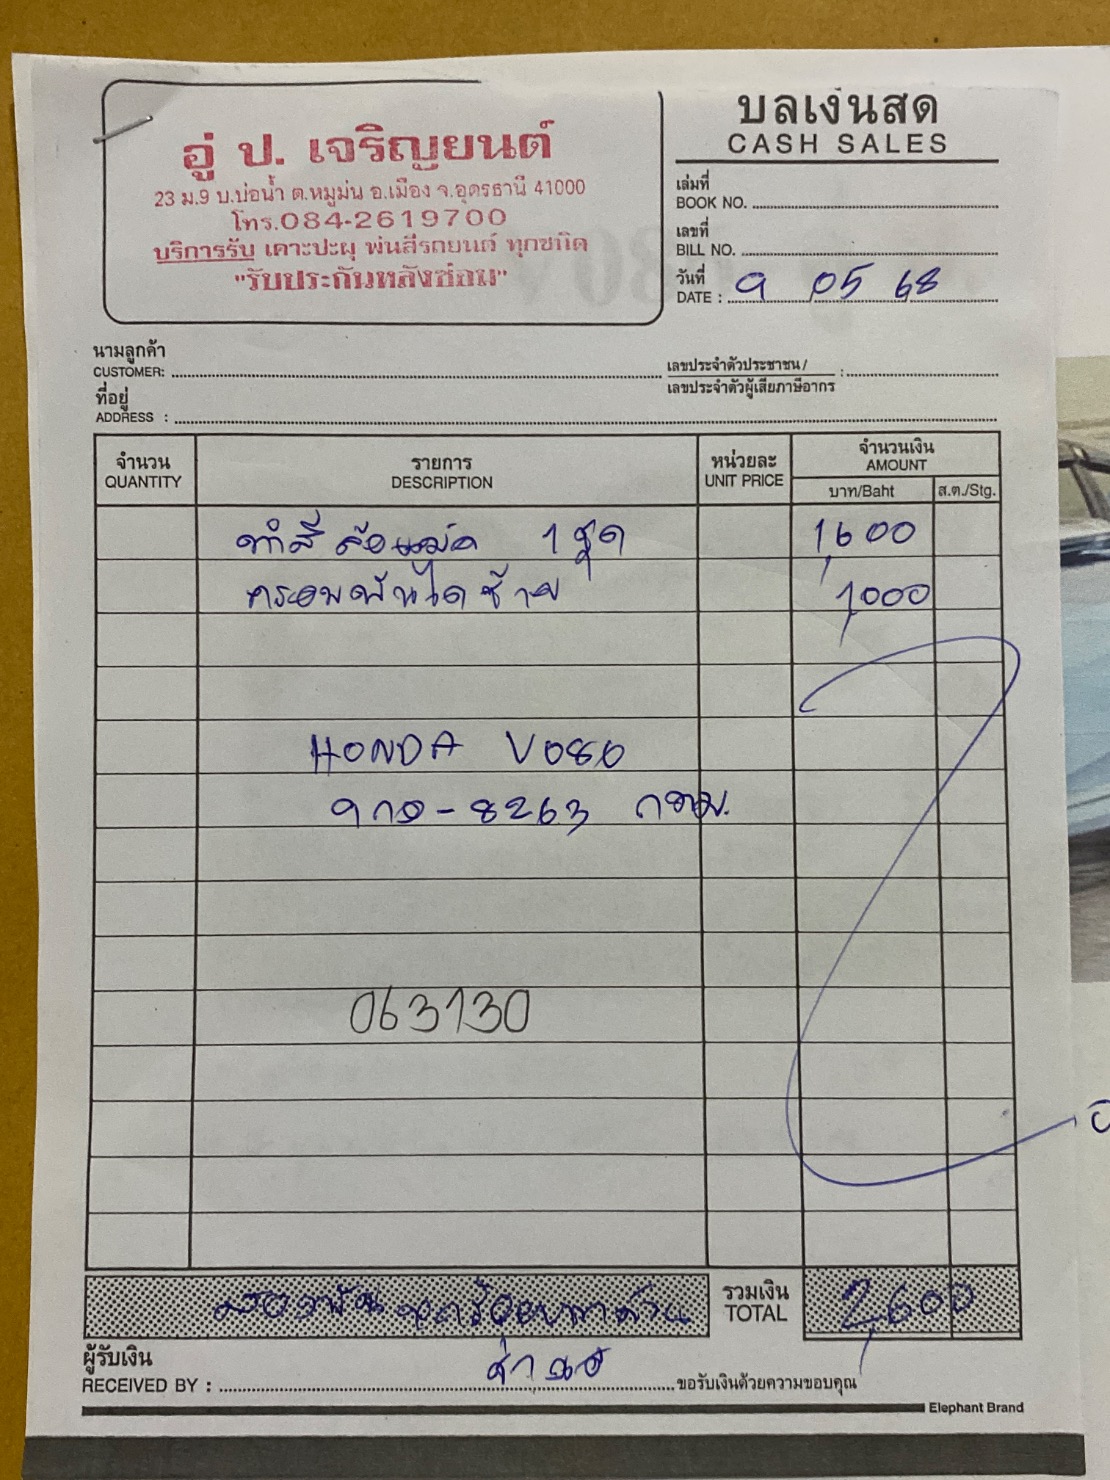 บิลเงินสด
CASH SALES
อู่ ป. เจริญยนต์
23 ม.9 บ.บ่อน้ำ ต.หมูม่น อ.เมือง จ.อุดรธานี 41000
โทร.084-2619700
บริการรับ เคาะปะผุ พ่นสีรถยนต์ ทุกชนิด
"รับประกันหลังซ่อม"
เล่มที่
BOOK NO.
เลขที่
BILL NO.
วันที่
DATE : 9 05 68
นามลูกค้า
CUSTOMER:
เลขประจำตัวประชาชน/ :
เลขประจำตัวผู้เสียภาษีอากร
ที่อยู่
ADDRESS :
จำนวน รายการ หน่วยละ จำนวนเงิน
QUANTITY DESCRIPTION UNIT PRICE AMOUNT
บาท/Baht ส.ต./Stg.
ทำสีล้อแม็ค 1 ชุด 1,600
ครอบบันไดซ้าย 1,000
HONDA V080
8263 กทม.
063130
สองพันหกร้อยบาทถ้วน รวมเงิน 2,600
TOTAL
ผู้รับเงิน
RECEIVED BY : ขอรับเงินด้วยความขอบคุณ
Elephant Brand